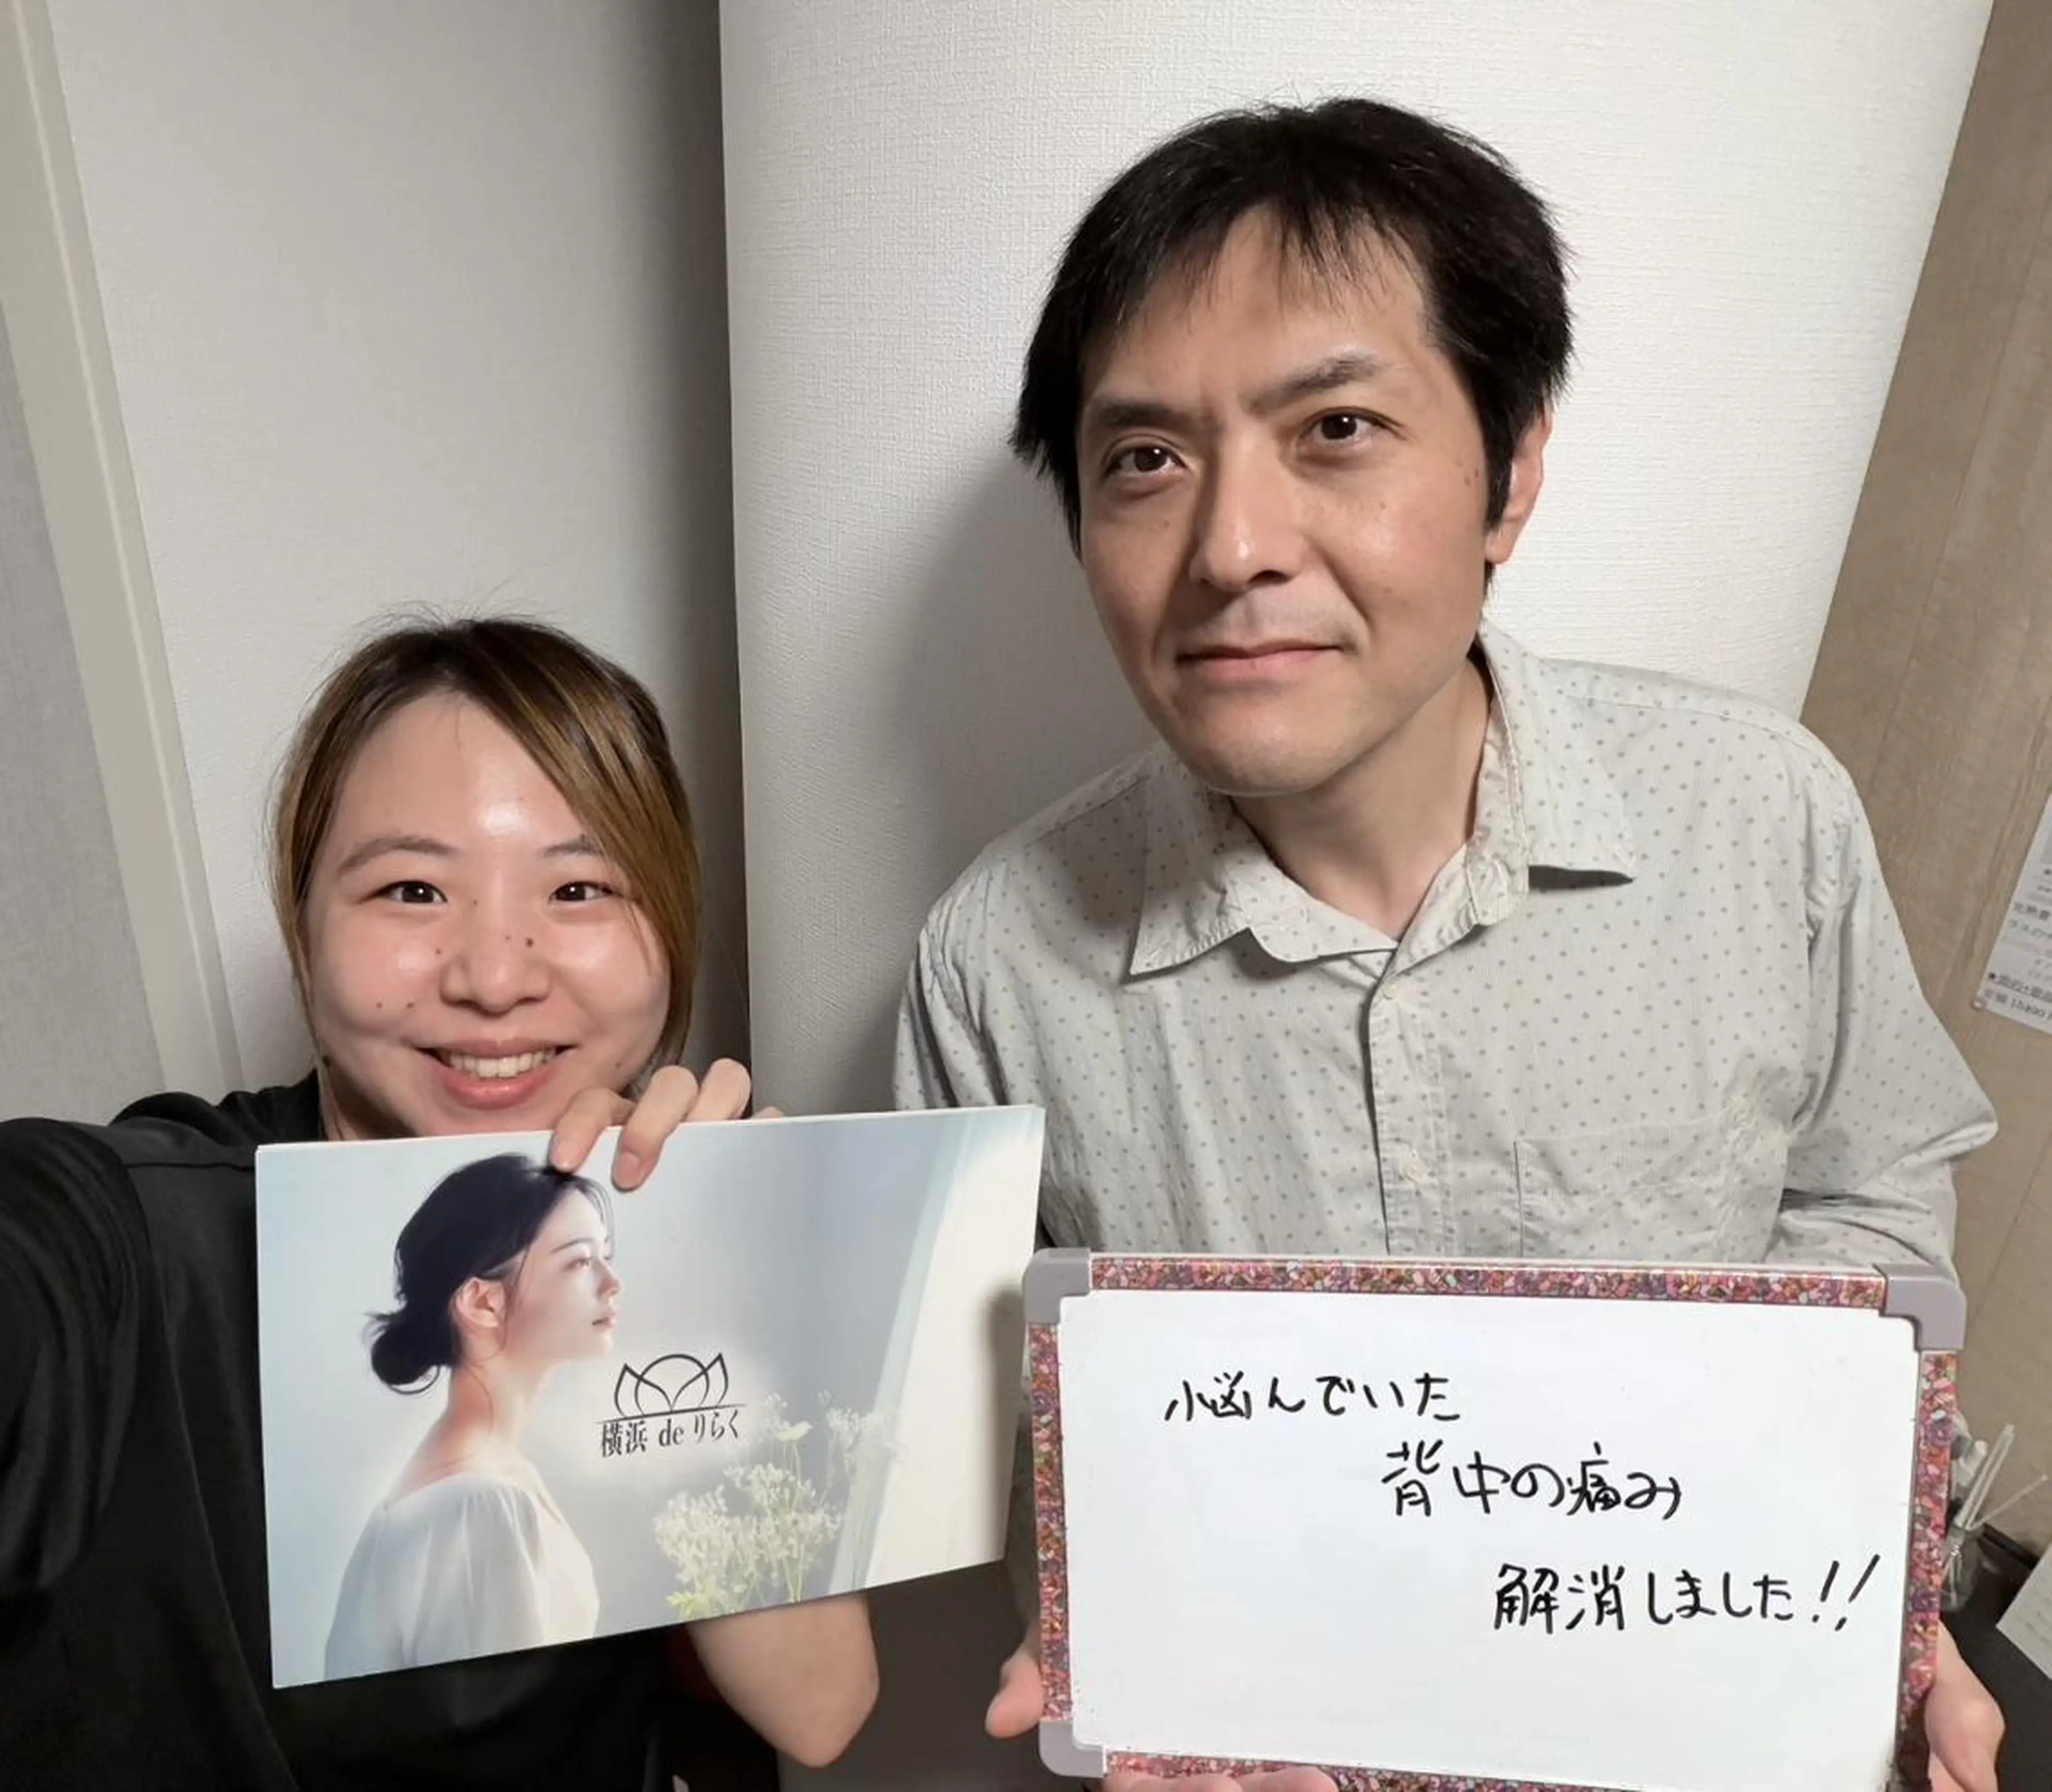 横浜 de りらく
悩んでいた
背中の痛み
解消しました!!